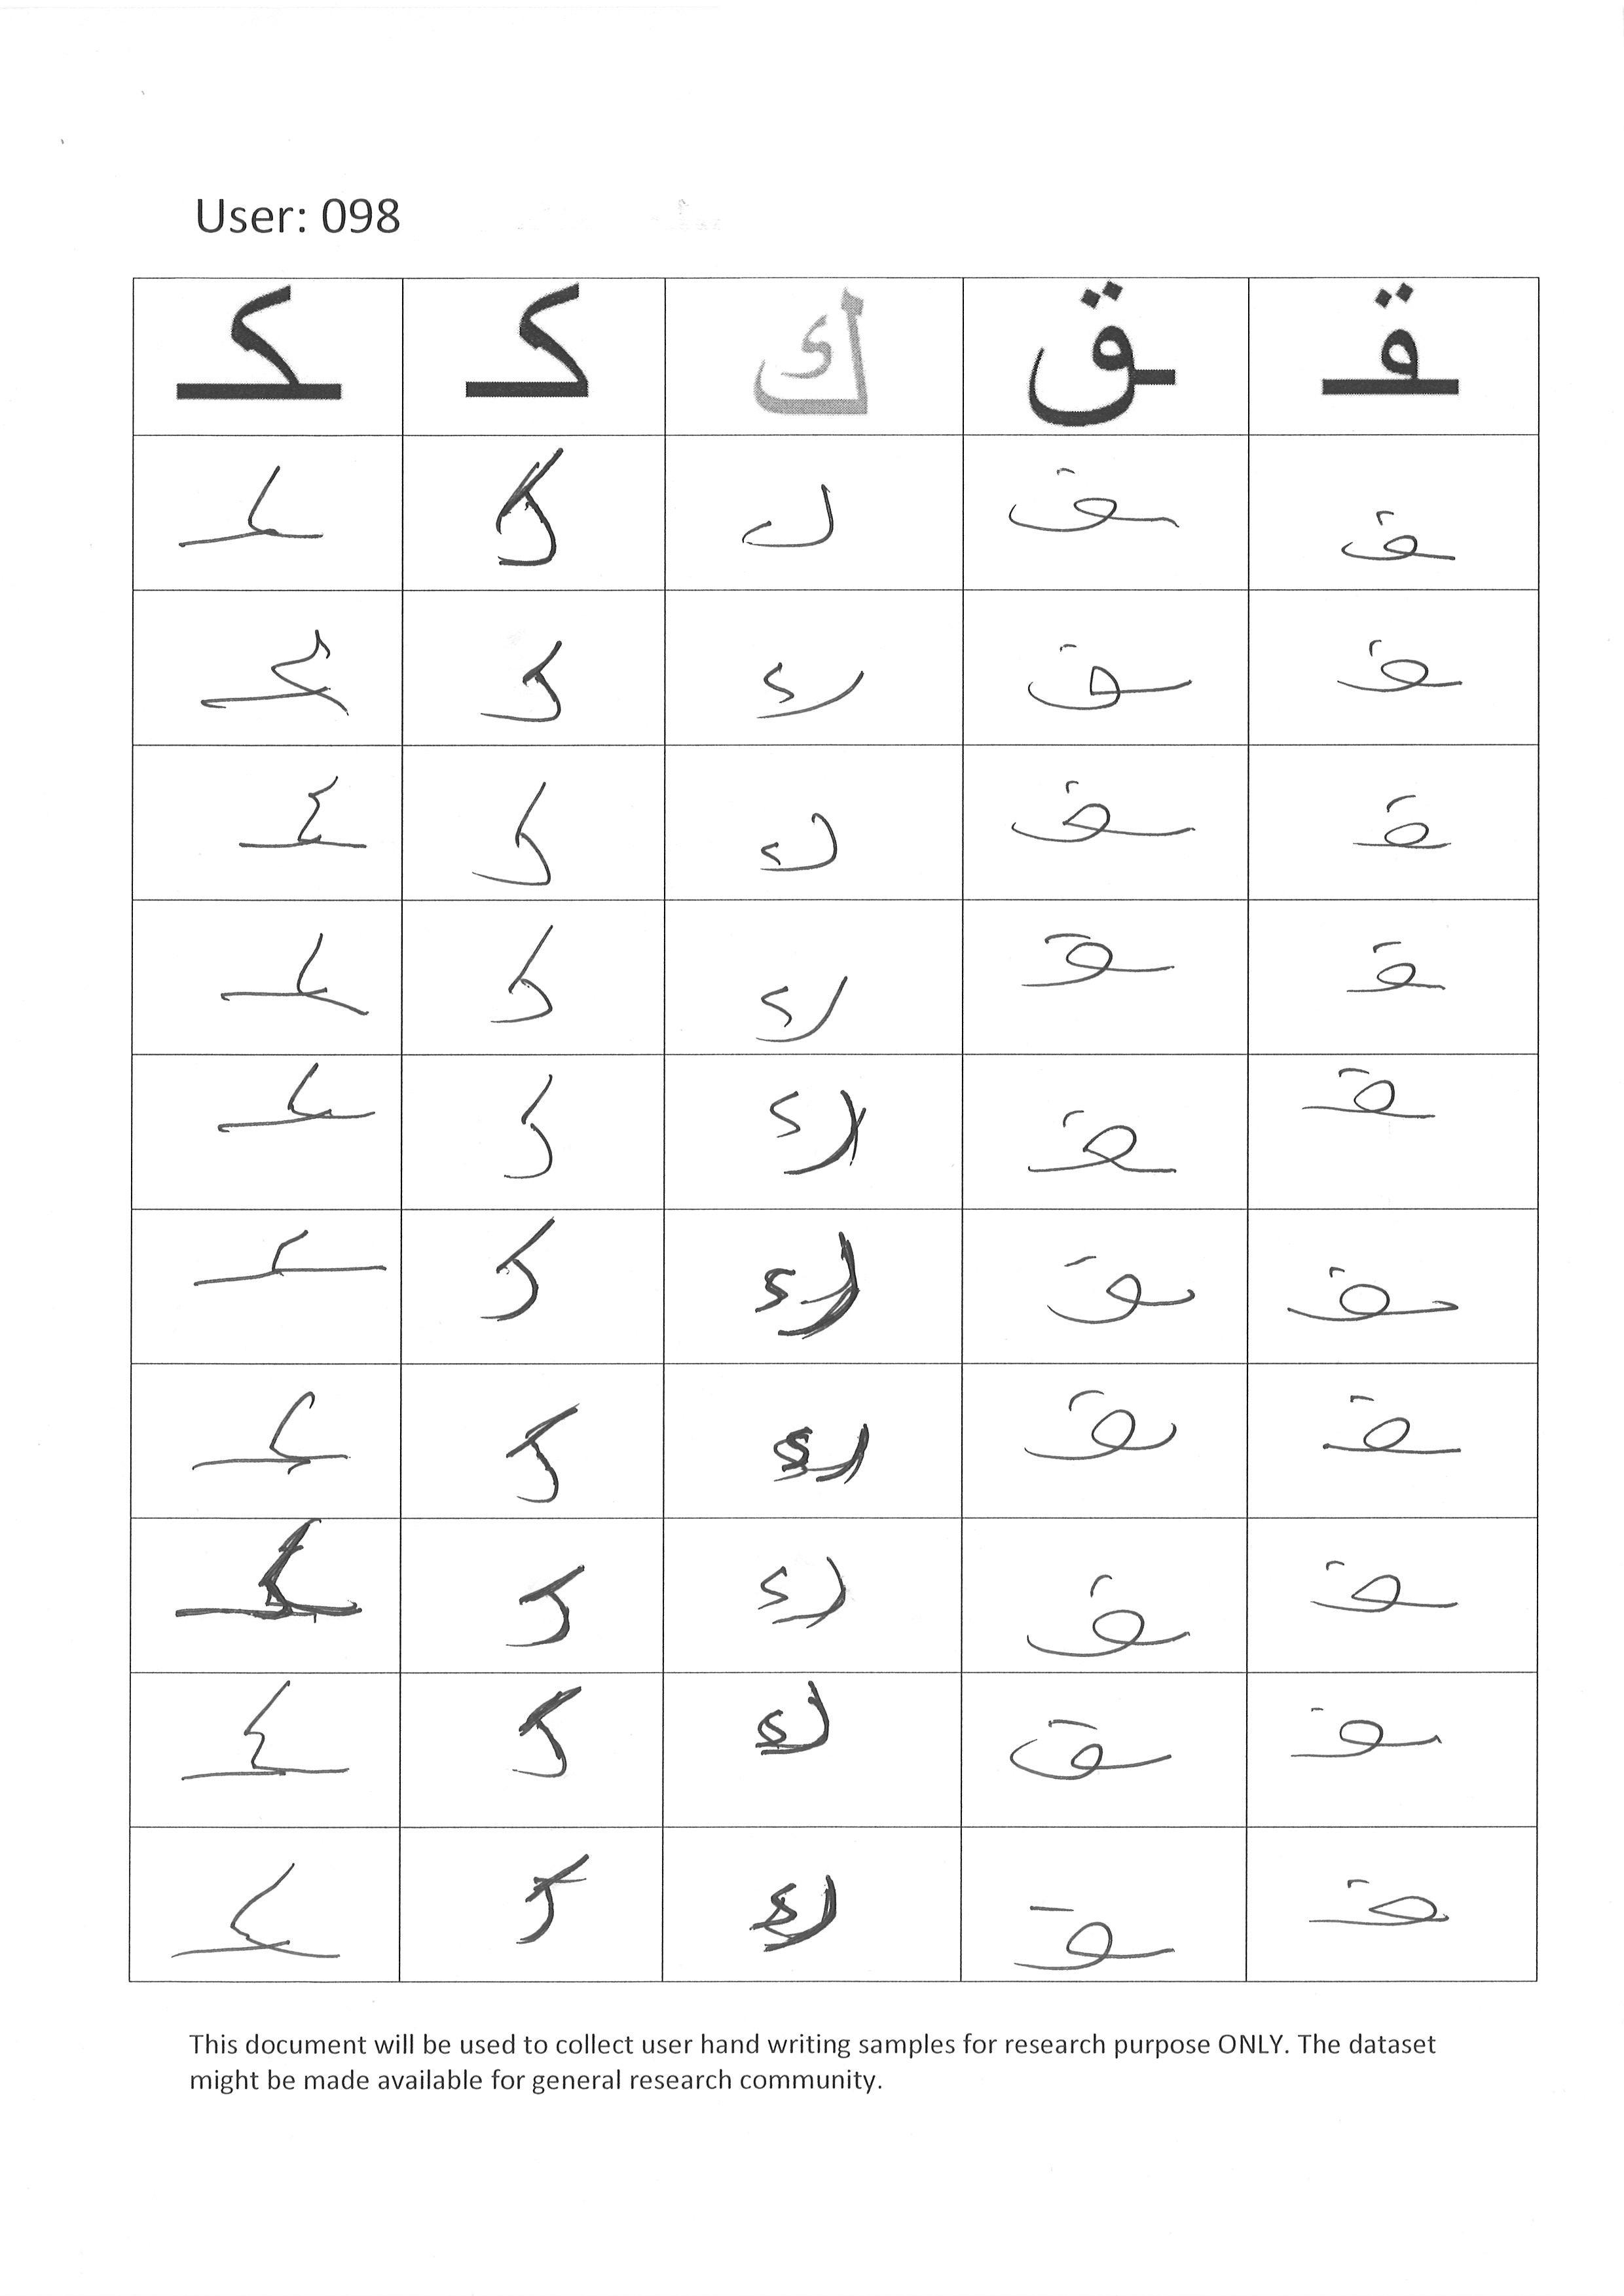 User: 098
ـقـ ـق ك كـ ـكـ
ـقـ ـق ل كـ ـكـ
ـقـ ـق ك كـ ـكـ
ـقـ ـق ك كـ ـكـ
ـقـ ـق ك كـ ـكـ
ـقـ ـق ك كـ ـكـ
ـقـ ـق ك كـ ـكـ
ـقـ ـق ك كـ ـكـ
ـقـ ـق ك كـ ـكـ
ـقـ ـق ك كـ ـكـ
ـقـ ـق ك كـ ـكـ
This document will be used to collect user hand writing samples for research purpose ONLY. The dataset
might be made available for general research community.